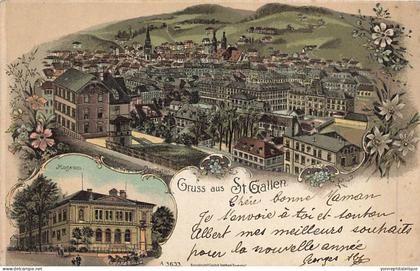 Museum
Gruss aus St Gallen
Chère bonne Maman
Je t'envoie à toi et tonton
Albert mes meilleurs souhaits
pour la nouvelle année
Georges
A 3633